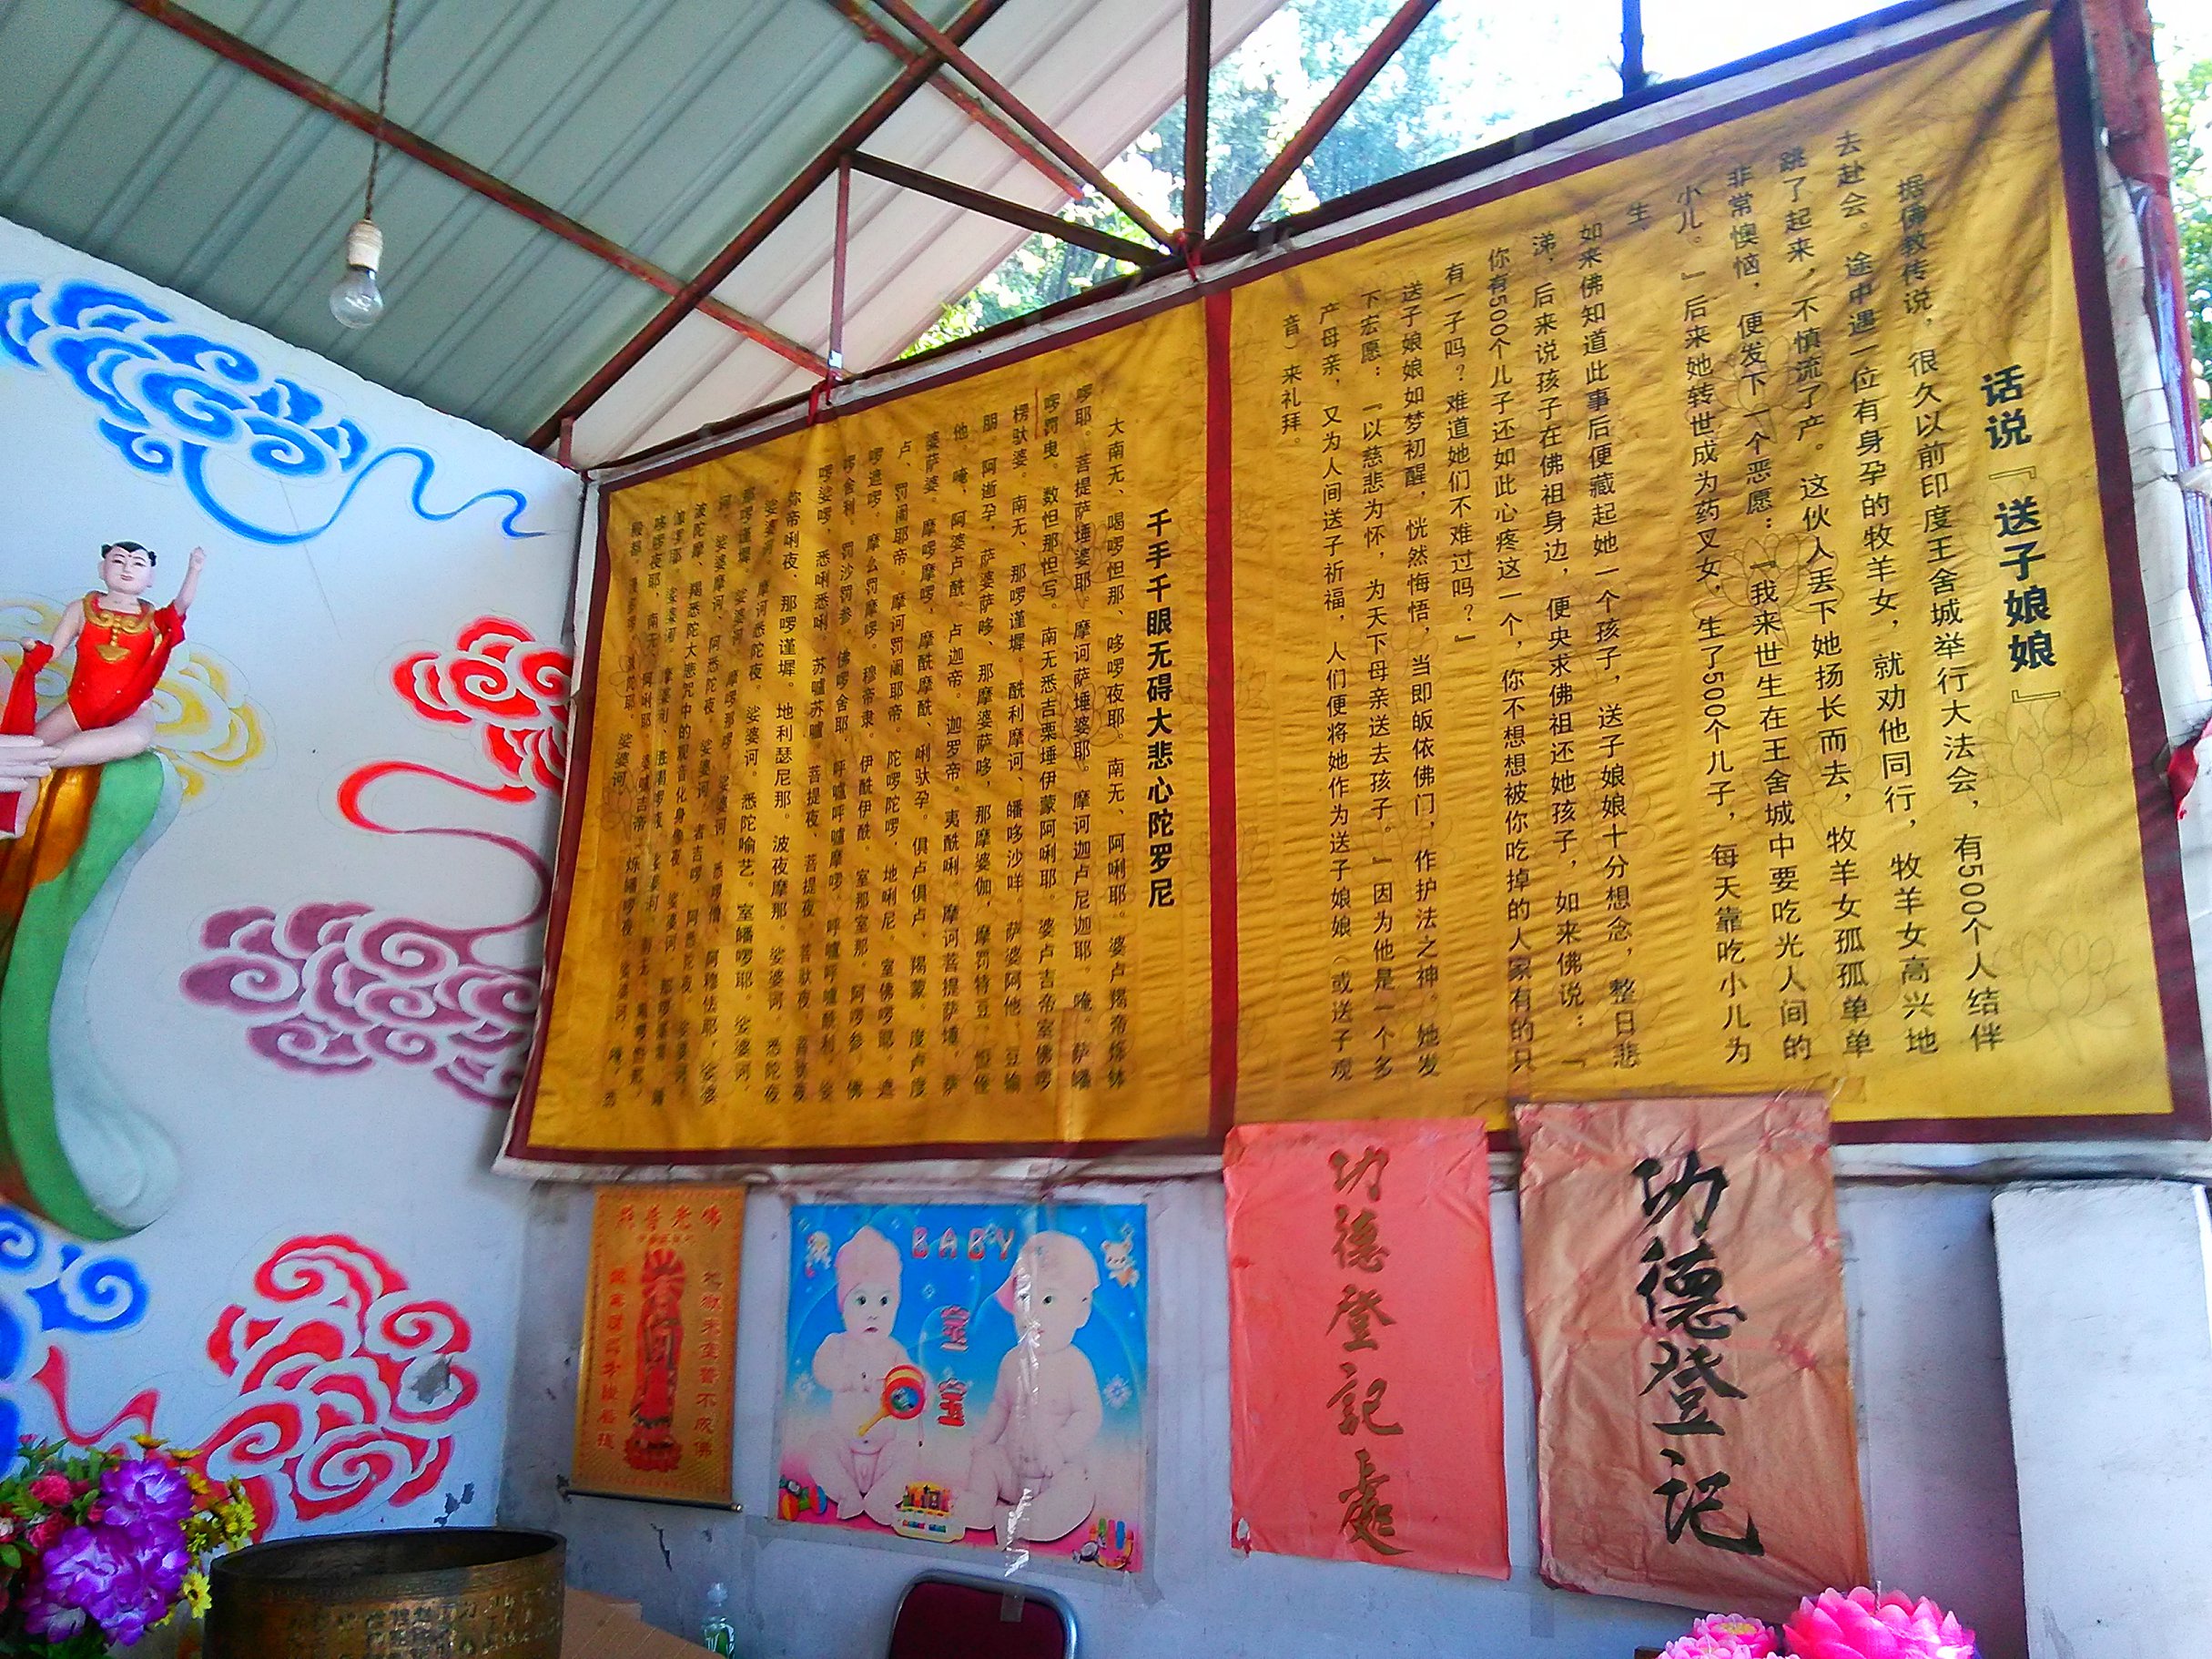 话说『送子娘娘』
据佛教传说，很久以前印度王舍城举行大法会，有500个人结伴
去赴会。途中遇一位有身孕的牧羊女，就劝他同行，牧羊女高兴地
跳了起来，不慎流了产。这伙人丢下她扬长而去，牧羊女孤孤单单
非常懊恼，便发下一个恶愿：『我来世生在王舍城中要吃光人间的
小儿。』后来她转世成为药叉女，生了500个儿子，每天靠吃小儿为
生。
如来佛知道此事后便藏起她一个孩子，送子娘娘十分想念，整日悲
涕，后来说孩子在佛祖身边，便央求佛祖还她孩子，如来佛说：『
你有500个儿子还如此心疼这一个，你不想想被你吃掉的人家有的只
有一子吗？难道她们不难过吗？』
送子娘娘如梦初醒，恍然悔悟，当即皈依佛门，作护法之神。她发
下宏愿：『以慈悲为怀，为天下母亲送去孩子。』因为他是一个多
产母亲，又为人间送子祈福，人们便将她作为送子娘娘（或送子观
音）来礼拜。
千手千眼无碍大悲心陀罗尼
大南无、喝啰怛那、哆啰夜耶。南无、阿唎耶。婆卢羯帝烁钵
啰耶。菩提萨埵婆耶。摩诃萨埵婆耶。摩诃迦卢尼迦耶。唵。萨皤
啰罚曳。数怛那怛写。南无悉吉栗埵伊蒙阿唎耶。婆卢吉帝室佛啰
楞驮婆。南无、那啰谨墀。醯利摩诃、皤哆沙咩。萨婆阿他。豆输
朋。阿逝孕，萨婆萨哆、那摩婆萨哆，那摩婆伽，摩罚特豆。怛侄
他。唵，阿婆卢醯。卢迦帝。迦罗帝。夷醯唎。摩诃菩提萨埵，萨
婆萨婆。摩啰摩啰，摩醯摩醯、唎驮孕。俱卢俱卢、羯蒙。度卢度
卢、罚阇耶帝。摩诃罚阇耶帝。陀啰陀啰，地唎尼。室佛啰耶。遮
啰遮啰。摩么罚摩啰。穆帝隶。伊醯伊醯。室那室那。阿啰参、佛
啰舍利。罚沙罚参。佛啰舍耶。呼嚧呼嚧摩啰。呼嚧呼嚧醯利。娑
啰娑啰，悉唎悉唎。苏嚧苏嚧。菩提夜、菩提夜。菩驮夜、菩驮夜
你帝唎夜、那啰谨墀。地利瑟尼那。波夜摩那。娑婆诃。悉陀夜
娑婆诃。摩诃悉陀夜。娑婆诃。悉陀喻艺。室皤啰耶。娑婆诃。
佛光普照
BABY
宝宝
功德登記處
功德登记